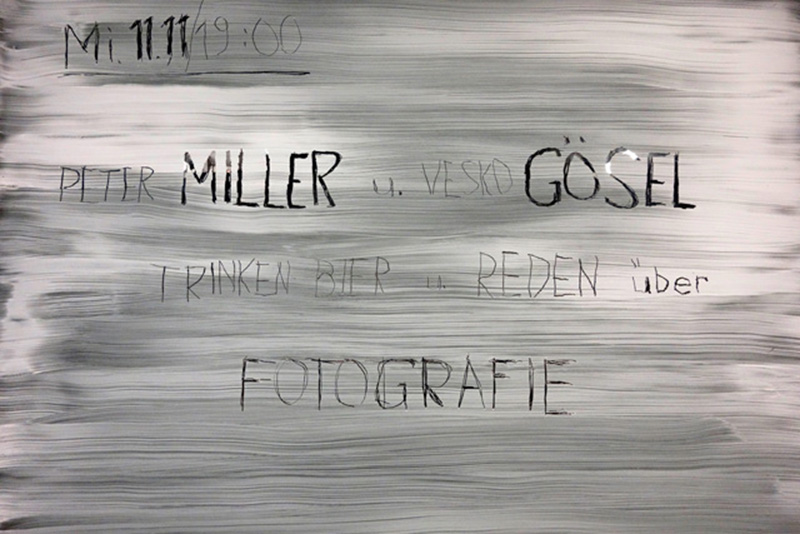 Mi. 11.11/19:00
PETER MILLER u. VESKO GÖSEL
TRINKEN BIER u. REDEN über
FOTOGRAFIE